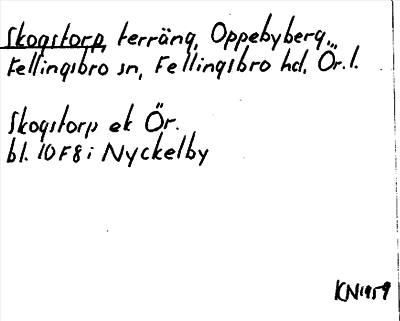 Skogstorp, terräng, Oppebyberg,
Fellingsbro sn, Fellingsbro hd, Ör. l.
Skogstorp ek Ör.
bl. 10F8i Nyckelby
KN1959